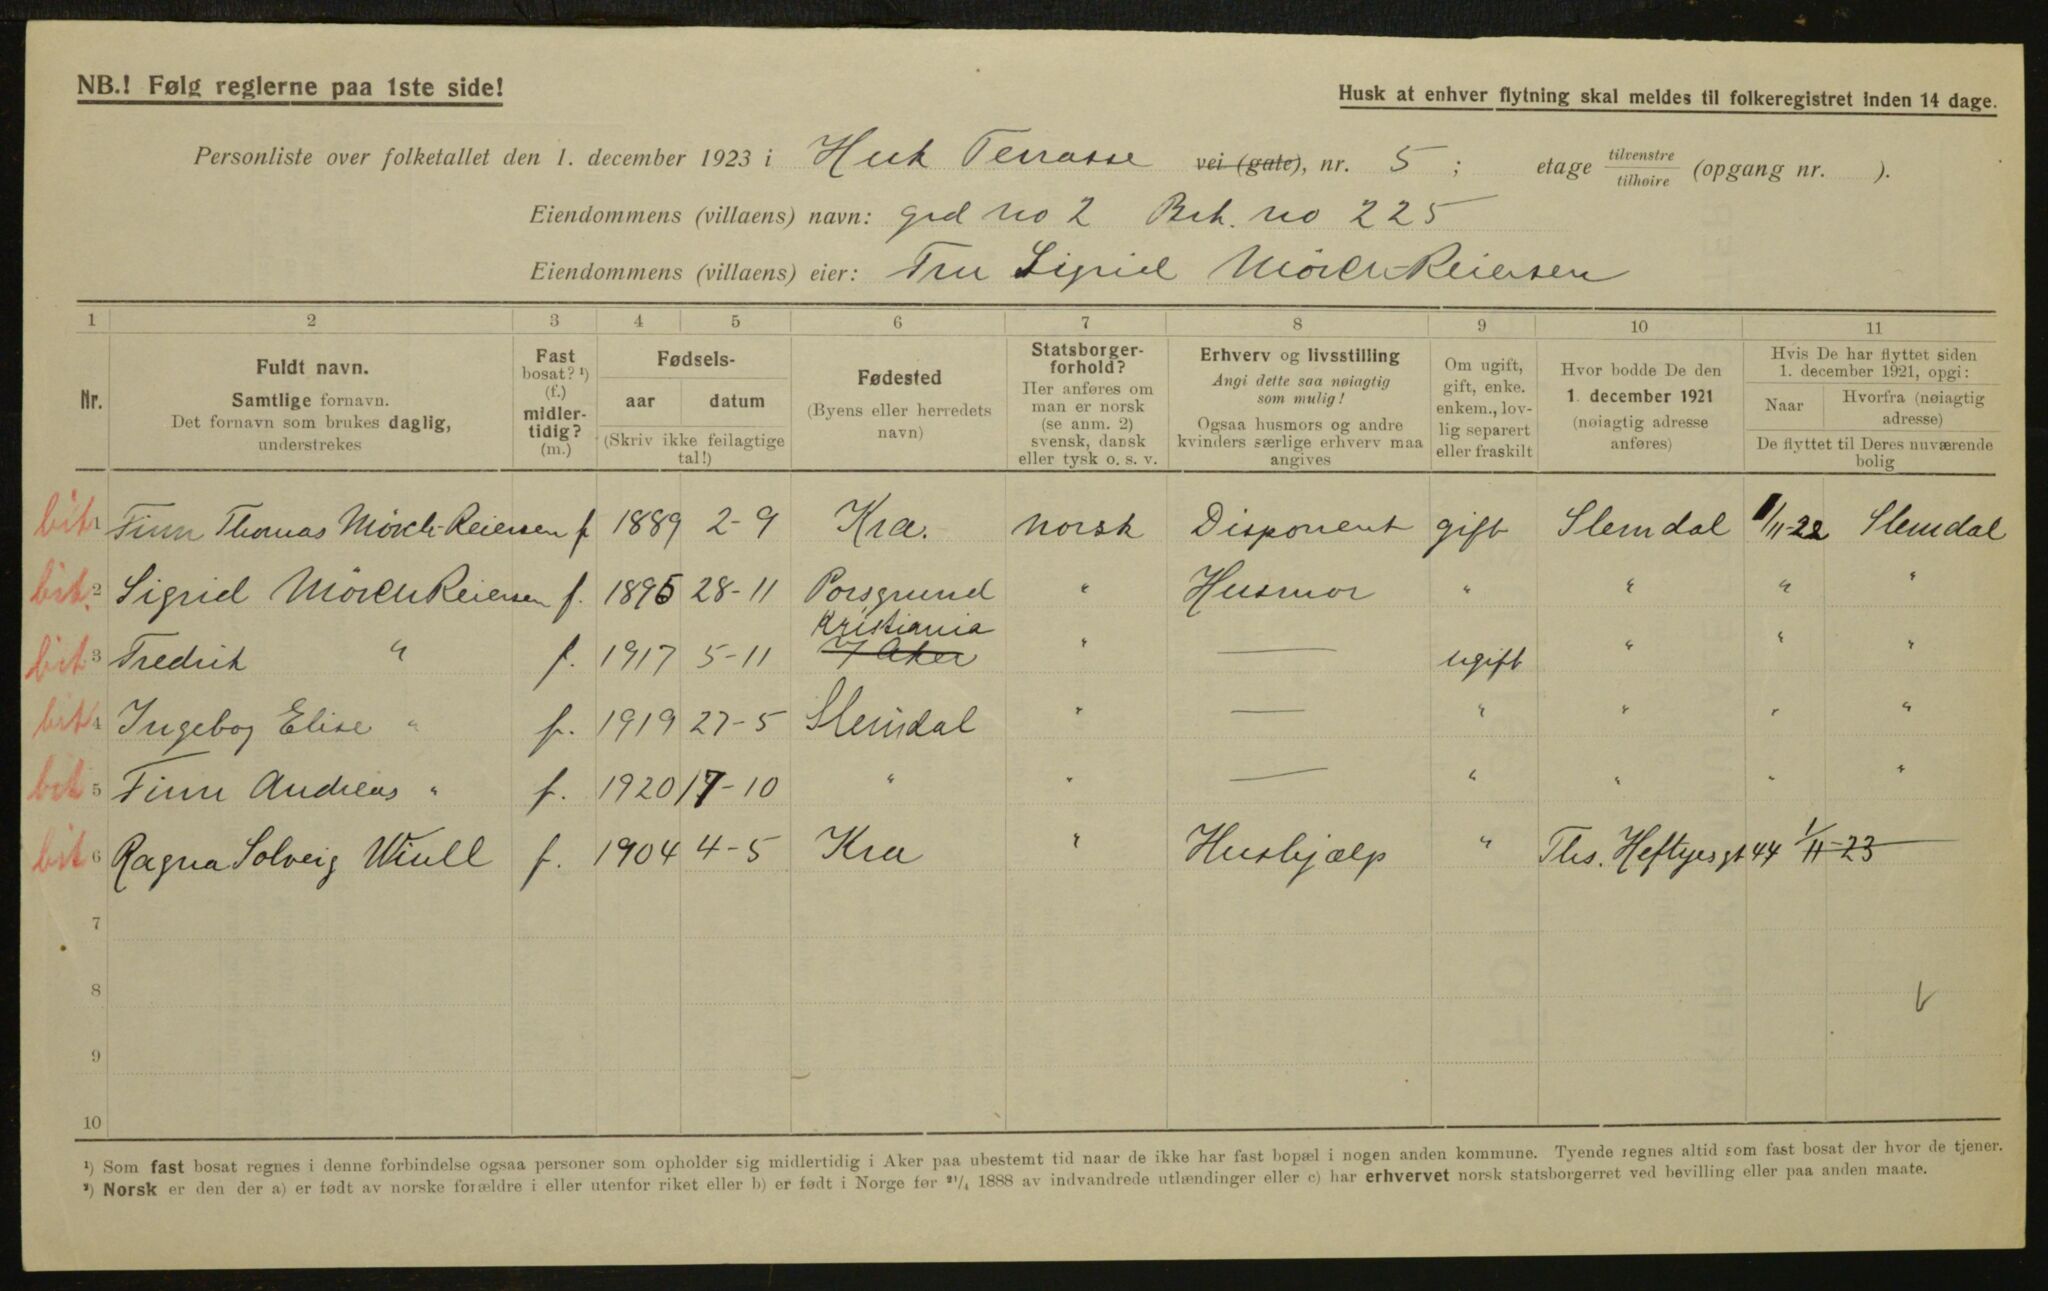 NB.! Følg reglerne paa 1ste side!
Husk at enhver flytning skal meldes til folkeregistret inden 14 dage.
Personliste over folketallet den 1. december 1923 i Huk Terrasse vei (gate), nr. 5 ; etage tilvenstre tilhøire (opgang nr. ).
Eiendommens (villaens) navn: grd no 2 Brk. no 225
Eiendommens (villaens) eier: Fru Sigrid Mörch-Reiersen
1 2 3 4 5 6 7 8 9 10 11
Nr.
Fuldt navn.
Samtlige fornavn.
Det fornavn som brukes daglig,
understrekes
Fast
bosat? ¹)
(f.)
midler-
tidig?
(m.)
Fødsels-
aar datum
(Skriv ikke feilagtige
tal!)
Fødested
(Byens eller herredets
navn)
Statsborger-
forhold?
Her anføres om
man er norsk
(se anm. 2)
svensk, dansk
eller tysk o. s. v.
Erhverv og livsstilling
Angi dette saa nøiagtig
som mulig!
Ogsaa husmors og andre
kvinders særlige erhverv maa
angives
Om ugift,
gift, enke.
enkem., lov-
lig separert
eller fraskilt
Hvor bodde De den
1. december 1921
(nøiagtig adresse
anføres)
Hvis De har flyttet siden
1. december 1921, opgi:
Naar
Hvorfra (nøiagtig
adresse)
De flyttet til Deres nuværende
bolig
bit 1 Finn Thomas Mörch-Reiersen f 1889 2-9 Kra. norsk Disponent gift Slemdal 1/11-22 Slemdal
bit. 2 Sigrid Mörch Reiersen f. 1895 28-11 Porsgrund " Husmor " " " "
Kristiania
bit 3 Fredrik " f. 1917 5-11 I Aker " — ugift " " "
bit 4 Ingebog Elise " f. 1919 27-5 Slemdal " — " " " "
bit 5 Finn Andreas " f. 1920 17-10 " " — " " " "
bit 6 Ragna Solveig Wiull f. 1904 4-5 Kra " Hushjælp " Ths. Heftyesgt 44 1/11-23
7
8
9
10
¹) Som fast bosat regnes i denne forbindelse ogsaa personer som opholder sig midlertidig i Aker paa ubestemt tid naar de ikke har fast bopæl i nogen anden kommune. Tyende regnes altid som fast bosat der hvor de tjener.
²) Norsk er den der a) er født av norske forældre i eller utenfor riket eller b) er født i Norge før ²¹/₄ 1888 av indvandrede utlændinger eller c) har erhvervet norsk statsborgerret ved bevilling eller paa anden maate.